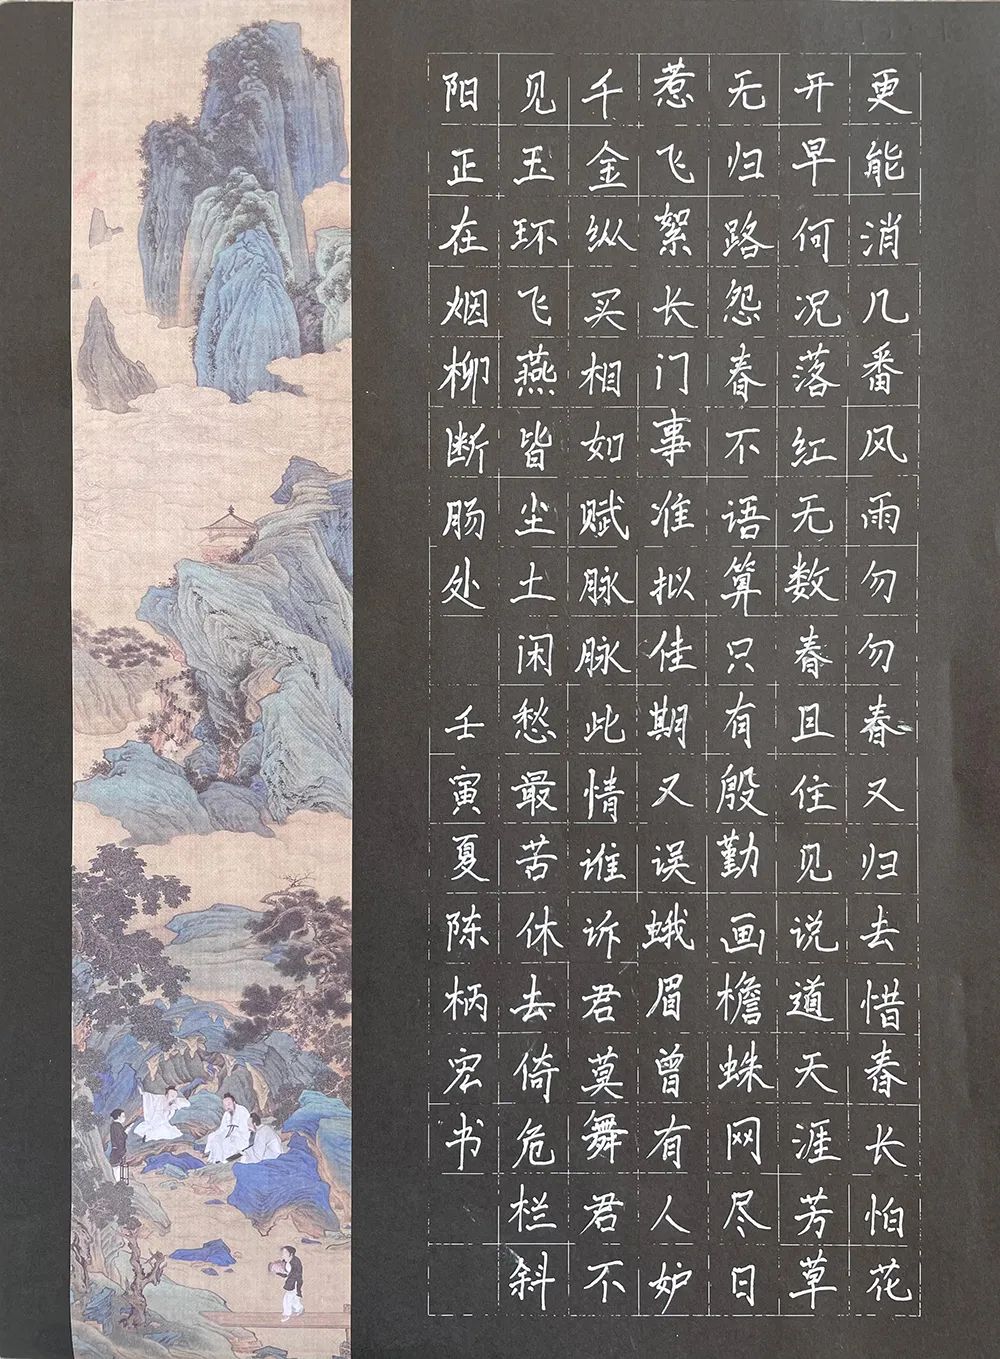 更能消几番风雨匆匆春又归去惜春长怕花
开早何况落红无数春且住见说道天涯芳草
无归路怨春不语算只有殷勤画檐蛛网尽日
惹飞絮长门事准拟佳期又误蛾眉曾有人妒
千金纵买相如赋脉脉此情谁诉君莫舞君不
见玉环飞燕皆尘土闲愁最苦休去倚危栏斜
阳正在烟柳断肠处 壬寅夏陈柄宏书